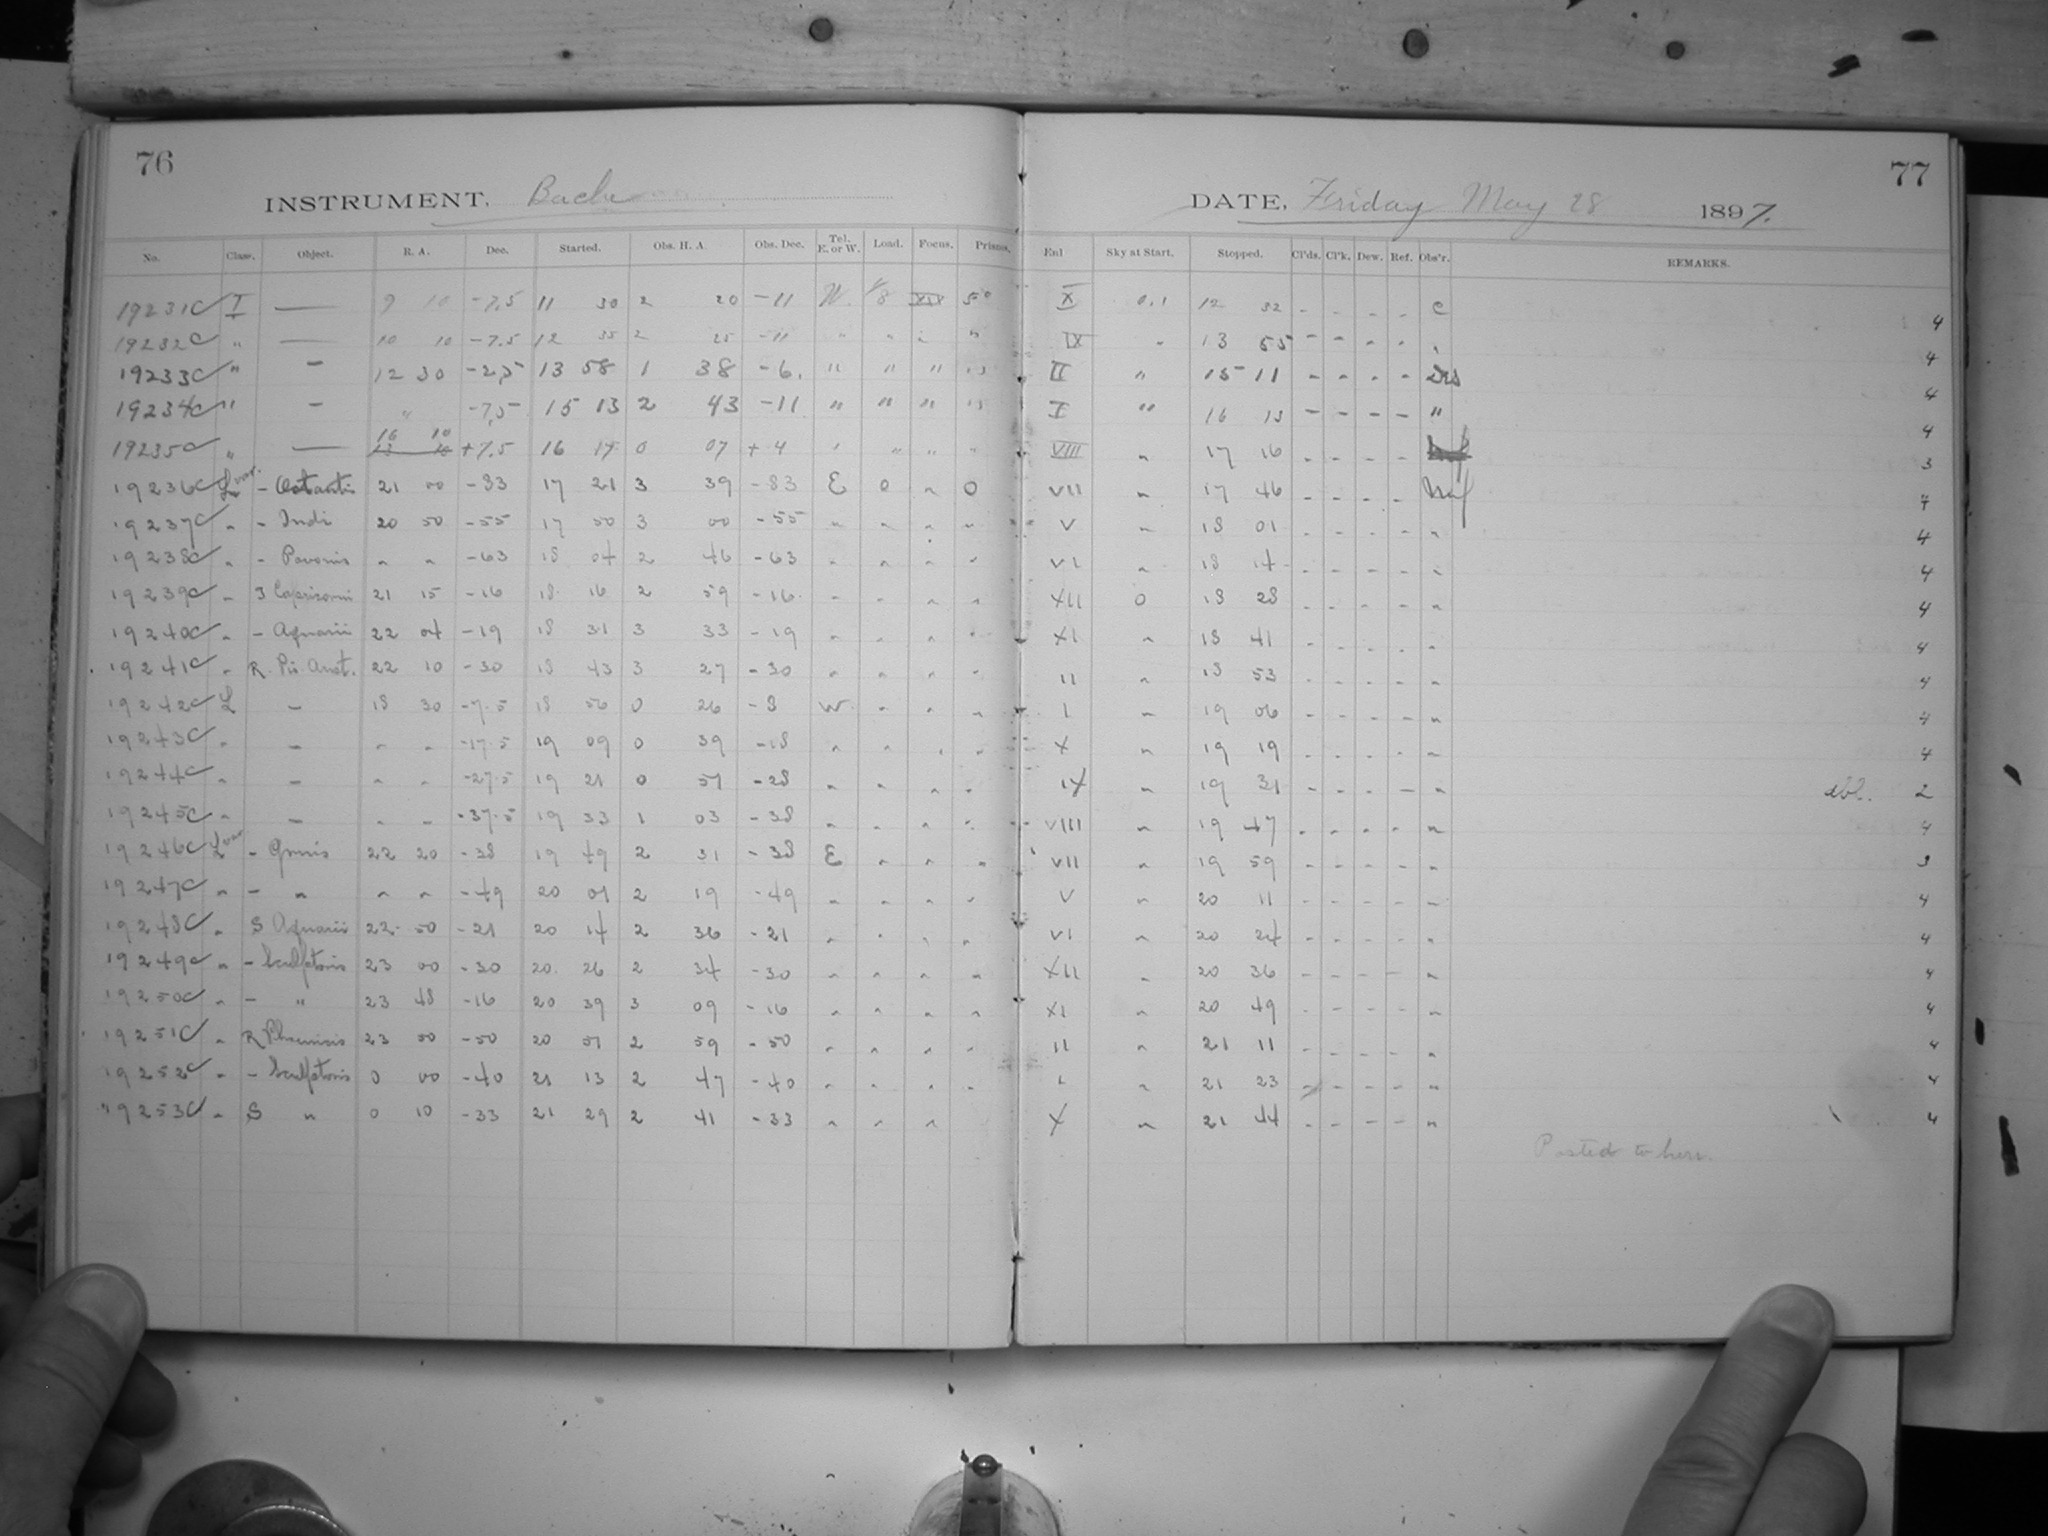 76
INSTRUMENT. Bache
No. Class. Object. R. A. Dec. Started. Obs. H. A. Obs. Dec. Tel. E. or W. Load. Focus. Prisms.
19231C I — 9 10 -7.5 11 30 2 20 -11 W. 1/8 XIX 5°
19232C " — 10 10 -7.5 12 35 2 25 -11 " " " "
19233C " — 12 30 -2.5 13 58 1 38 -6. " " " "
19234C " — " -7.5 15 13 2 43 -11 " " " "
19235C " — 16 10 +7.5 16 17 0 07 +4 " " " "
19236C L var. - Octantis 21 00 -83 17 21 3 39 -83 E 0 " 0
19237C " - Indi 20 50 -55 17 50 3 00 -55 " " " "
19238C " - Pavonis " " -63 18 04 2 46 -63 " " " "
19239C " Capricorni 21 15 -16 18 16 2 59 -16 " " " "
19240C " - Aquarii 22 04 -19 18 31 3 33 -19 " " " "
19241C " R. Pis. Aust. 22 10 -30 18 43 3 27 -30 " " " "
19242C L - 18 30 -7.5 18 56 0 26 -8 W " " "
19243C " - " " -17.5 19 09 0 39 -18 " " " "
19244C " - " " -27.5 19 21 0 51 -28 " " " "
19245C " - " " -37.5 19 33 1 03 -38 " " " "
19246C L var - Gruis 22 20 -38 19 49 2 31 -38 E " " "
19247C " - " " " -49 20 01 2 19 -49 " " " "
19248C " S Aquarii 22 50 -21 20 14 2 36 -21 " " " "
19249C " - Sculptoris 23 00 -30 20 26 2 34 -30 " " " "
19250C " - " 23 48 -16 20 39 3 09 -16 " " " "
19251C " R Phoenicis 23 50 -50 20 51 2 59 -50 " " " "
19252C " - Sculptoris 0 00 -40 21 13 2 47 -40 " " " "
19253C " S " 0 10 -33 21 29 2 41 -33 " " "
77
DATE, Friday May 28 1897.
Enl Sky at Start. Stopped. Cl'ds. Cl'k. Dew. Ref. Obs'r. REMARKS.
X 0.1 12 32 - - - - C 4
IX " 13 55 - - - - " 4
II " 15 11 - - - - 4
I " 16 13 - - - - " 4
VIII " 17 16 3
VII " 17 46 - - - - 4
V " 18 01 - - - - " 4
VI " 18 14 - - - - " 4
XII 0 18 28 - - - - " 4
XI " 18 41 - - - - " 4
II " 18 53 - - - - " 4
I " 19 06 - - - - " 4
X " 19 19 - - - - " 4
IX " 19 31 - - - - " dbl. 2
VIII " 19 47 - - - - " 4
VII " 19 59 - - - - " 3
V " 20 11 - - - - " 4
VI " 20 24 - - - - " 4
XII " 20 36 - - - - " 4
XI " 20 49 - - - - " 4
II " 21 11 - - - - " 4
I " 21 23 - - - - " 4
X " 21 44 - - - - " 4
Posted to here.